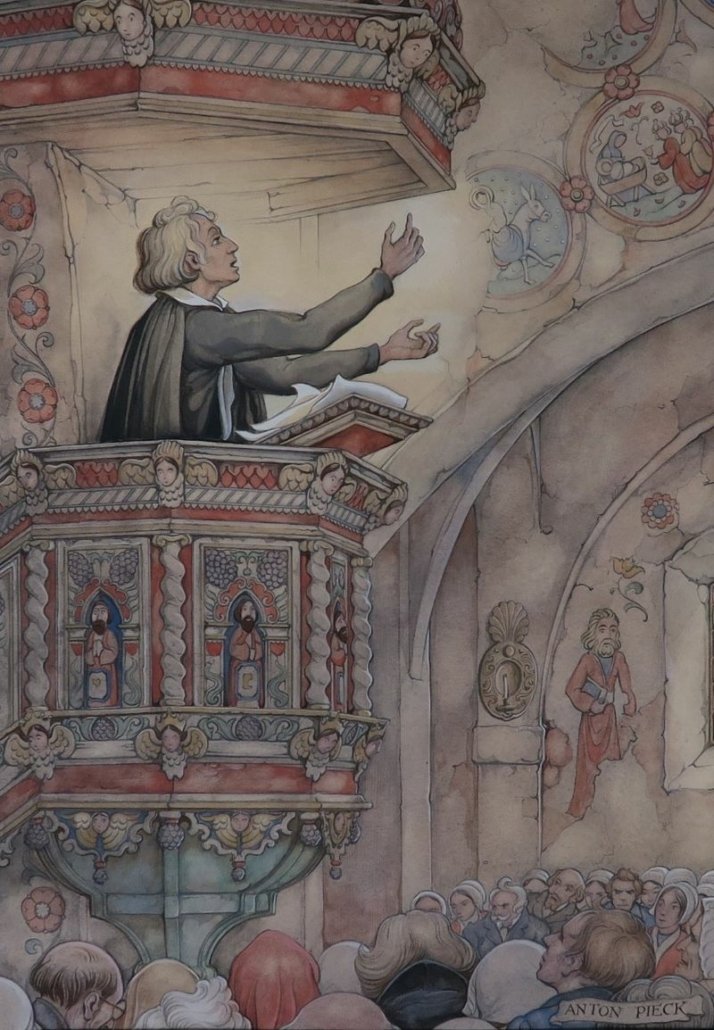 ANTON PIECK